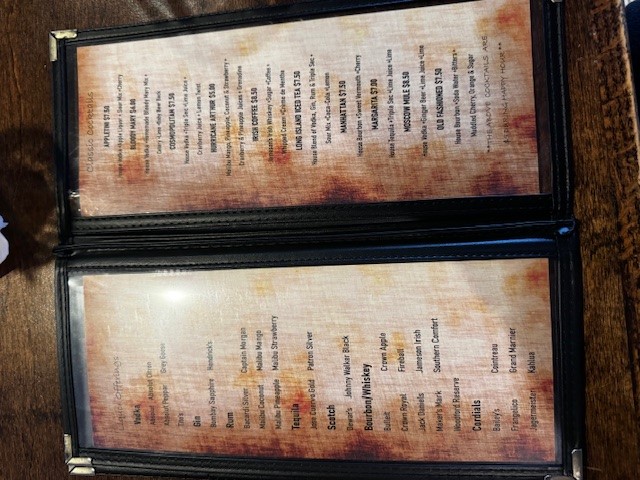 CLASSIC COCKTAILS
APPLETINI $7.50
House Vodka • Apple Liqueur • Sour Mix • Cherry
BLOODY MARY $6.00
House Vodka • Homemade Bloody Mary Mix •
Celery • Lime •
COSMOPOLITAN $7.50
House Vodka • Triple Sec • Lime Juice •
Cranberry Juice • Lemon Twist
HURRICANE $9.00
Malibu Mango, Pineapple, Coconut & Strawberry •
Cranberry & Pineapple Juices • Grenadine
IRISH COFFEE $8.50
Jameson's Irish Whiskey • Sugar • Coffee •
Whipped Cream • Creme de Menthe
LONG ISLAND ICED TEA $7.50
House Blend of Vodka, Gin, Rum & Triple Sec •
Sour Mix • Coca-Cola • Lemon
MANHATTAN $7.50
House Bourbon • Sweet Vermouth • Cherry
MARGARITA $7.00
House Tequila • Triple Sec • Lime Juice • Lime
MOSCOW MULE $8.50
House Vodka • Ginger Beer • Lime Juice • Lime
OLD FASHIONED $7.50
House Bourbon • Soda Water • Bitters •
Muddled Cherry, Orange & Sugar
COCKTAILS ARE
HAPPY HOUR **
Vodka
Absolut Absolut Citron
Absolut Peppar Grey Goose
Tito's
Gin
Bombay Sapphire Hendrick's
Rum
Bacardi Silver Captain Morgan
Malibu Coconut Malibu Mango
Malibu Pineapple Malibu Strawberry
Tequila
Jose Cuervo Gold Patron Silver
Scotch
Dewar's Johnny Walker Black
Bourbon/Whiskey
Bulleit Crown Apple
Crown Royal Fireball
Jack Daniels Jameson Irish
Maker's Mark Southern Comfort
Woodford Reserve
Cordials
Bailey's Cointreau
Frangelico Grand Marnier
Jagermeister Kahlua